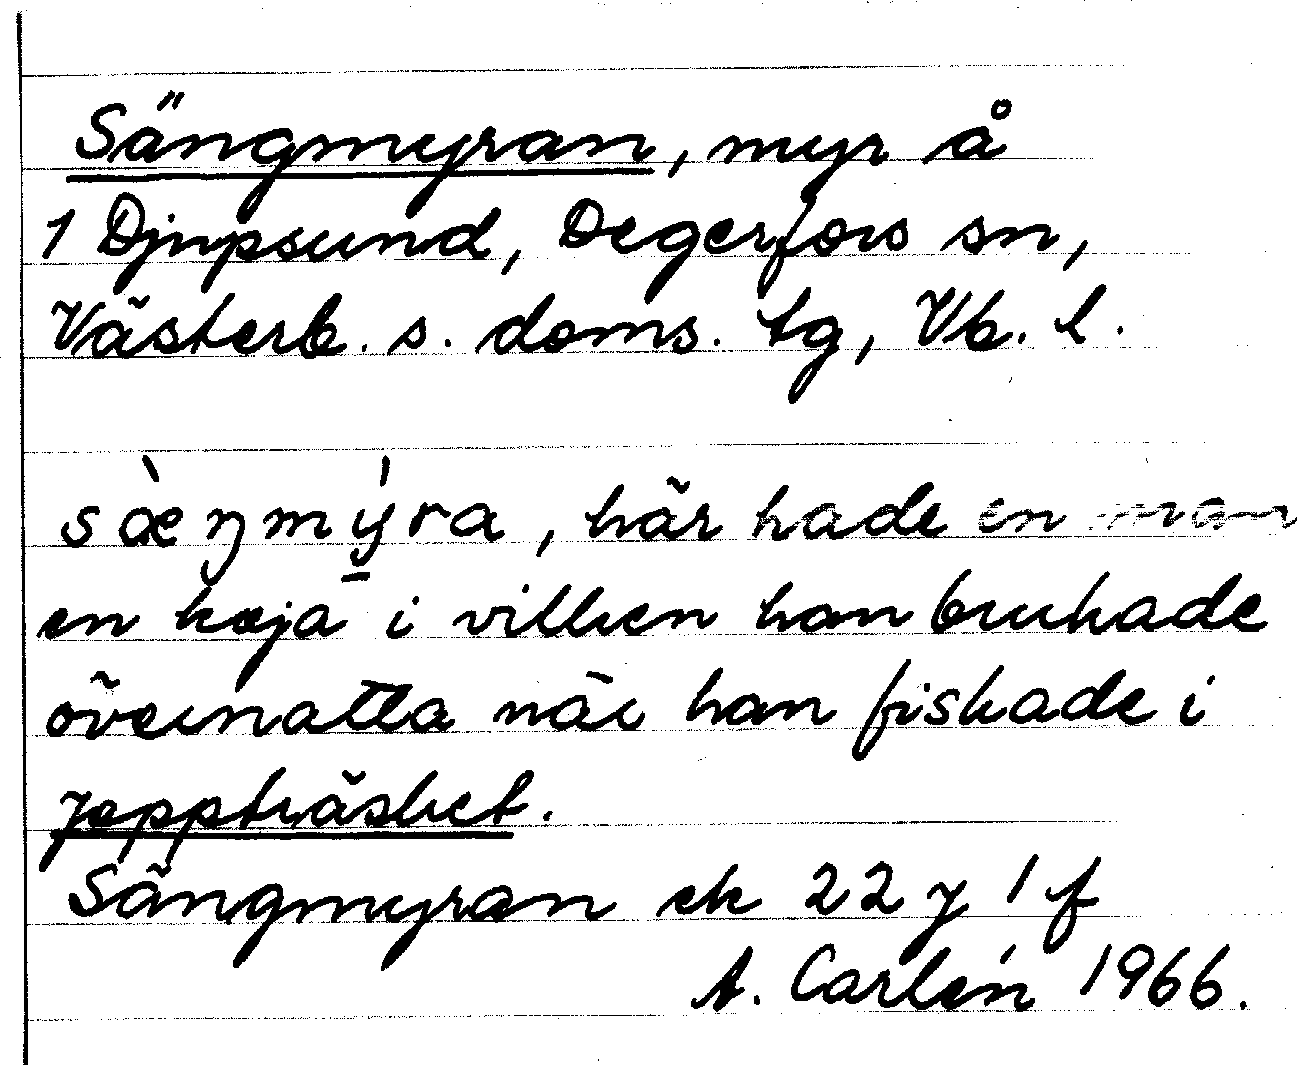 Sängmyran, myr å
1 Djupsund, Degerfors sn,
Västerb. s. doms. tg, Vb. l.
sæ̀ŋmýra, här hade en man
en koja i vilken han brukade
övernatta när han fiskade i
Joppträsket.
Sängmyran ek 22 J 1 f
A. Carlén 1966.